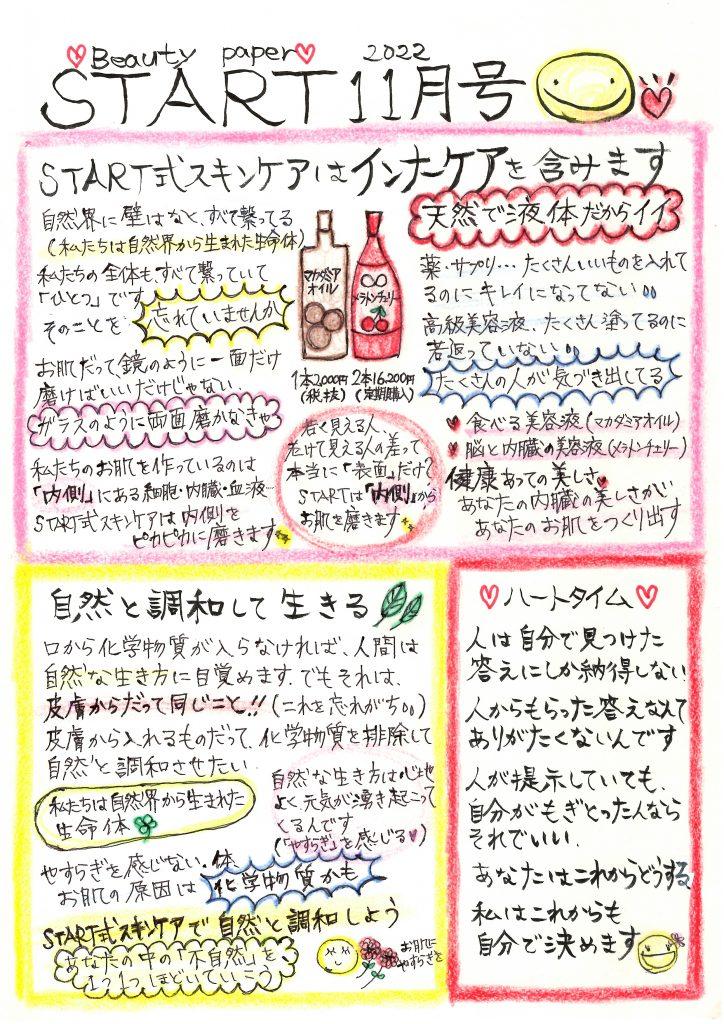 Beauty paper 2022
START 11月号
START式スキンケアはインナーケアを含みます
自然界に壁はなく、すべて繋ってる
(私たちは自然界から生まれた生命体)
私たちの全体も、すべて繋っていて
「ひとつ」です
そのことを
忘れていませんか
お肌だって鏡のように一面だけ
磨けばいいだけじゃない
ガラスのように両面磨かなきゃ
私たちのお肌を作っているのは
「内側」にある細胞・内臓・血液…
START式スキンケアは内側を
ピカピカに磨きます
マカダミア
オイル
メラトンチェリー
1本2,000円
(税抜)
2本16,200円
(定期購入)
若く見える人、
老けて見える人の差って
本当に「表面」だけ?
STARTは「内側」から
お肌を磨きます
天然で液体だからイイ
薬・サプリ…たくさんいいものを入れて
るのにキレイになってない
高級美容液、たくさん塗ってるのに
若返っていない
たくさんの人が気づき出してる
食べる美容液(マカダミアオイル)
脳と内臓の美容液(メラトンチェリー)
健康あっての美しさ
あなたの内臓の美しさが
あなたのお肌をつくり出す
自然と調和して生きる
口から化学物質が入らなければ、人間は
自然な生き方に目覚めます。でもそれは、
皮膚からだって同じこと!!(これを忘れがち)
皮膚から入れるものだって、化学物質を排除して
自然と調和させたい
私たちは自然界から生まれた
生命体
自然な生き方は心地
よく元気が湧き起こって
くるんです
(「やすらぎ」を感じる)
やすらぎを感じない体、
お肌の原因は
化学物質かも
START式スキンケアで自然と調和しよう
あなたの中の「不自然」を
1つ1つほどいていこう
お肌に
やすらぎを
ハートタイム
人は自分で見つけた
答えにしか納得しない
人からもらった答えなんて
ありがたくないんです
人が提示していても、
自分がもぎとったんなら
それでいい。
あなたはこれからどうする
私はこれからも
自分で決めます